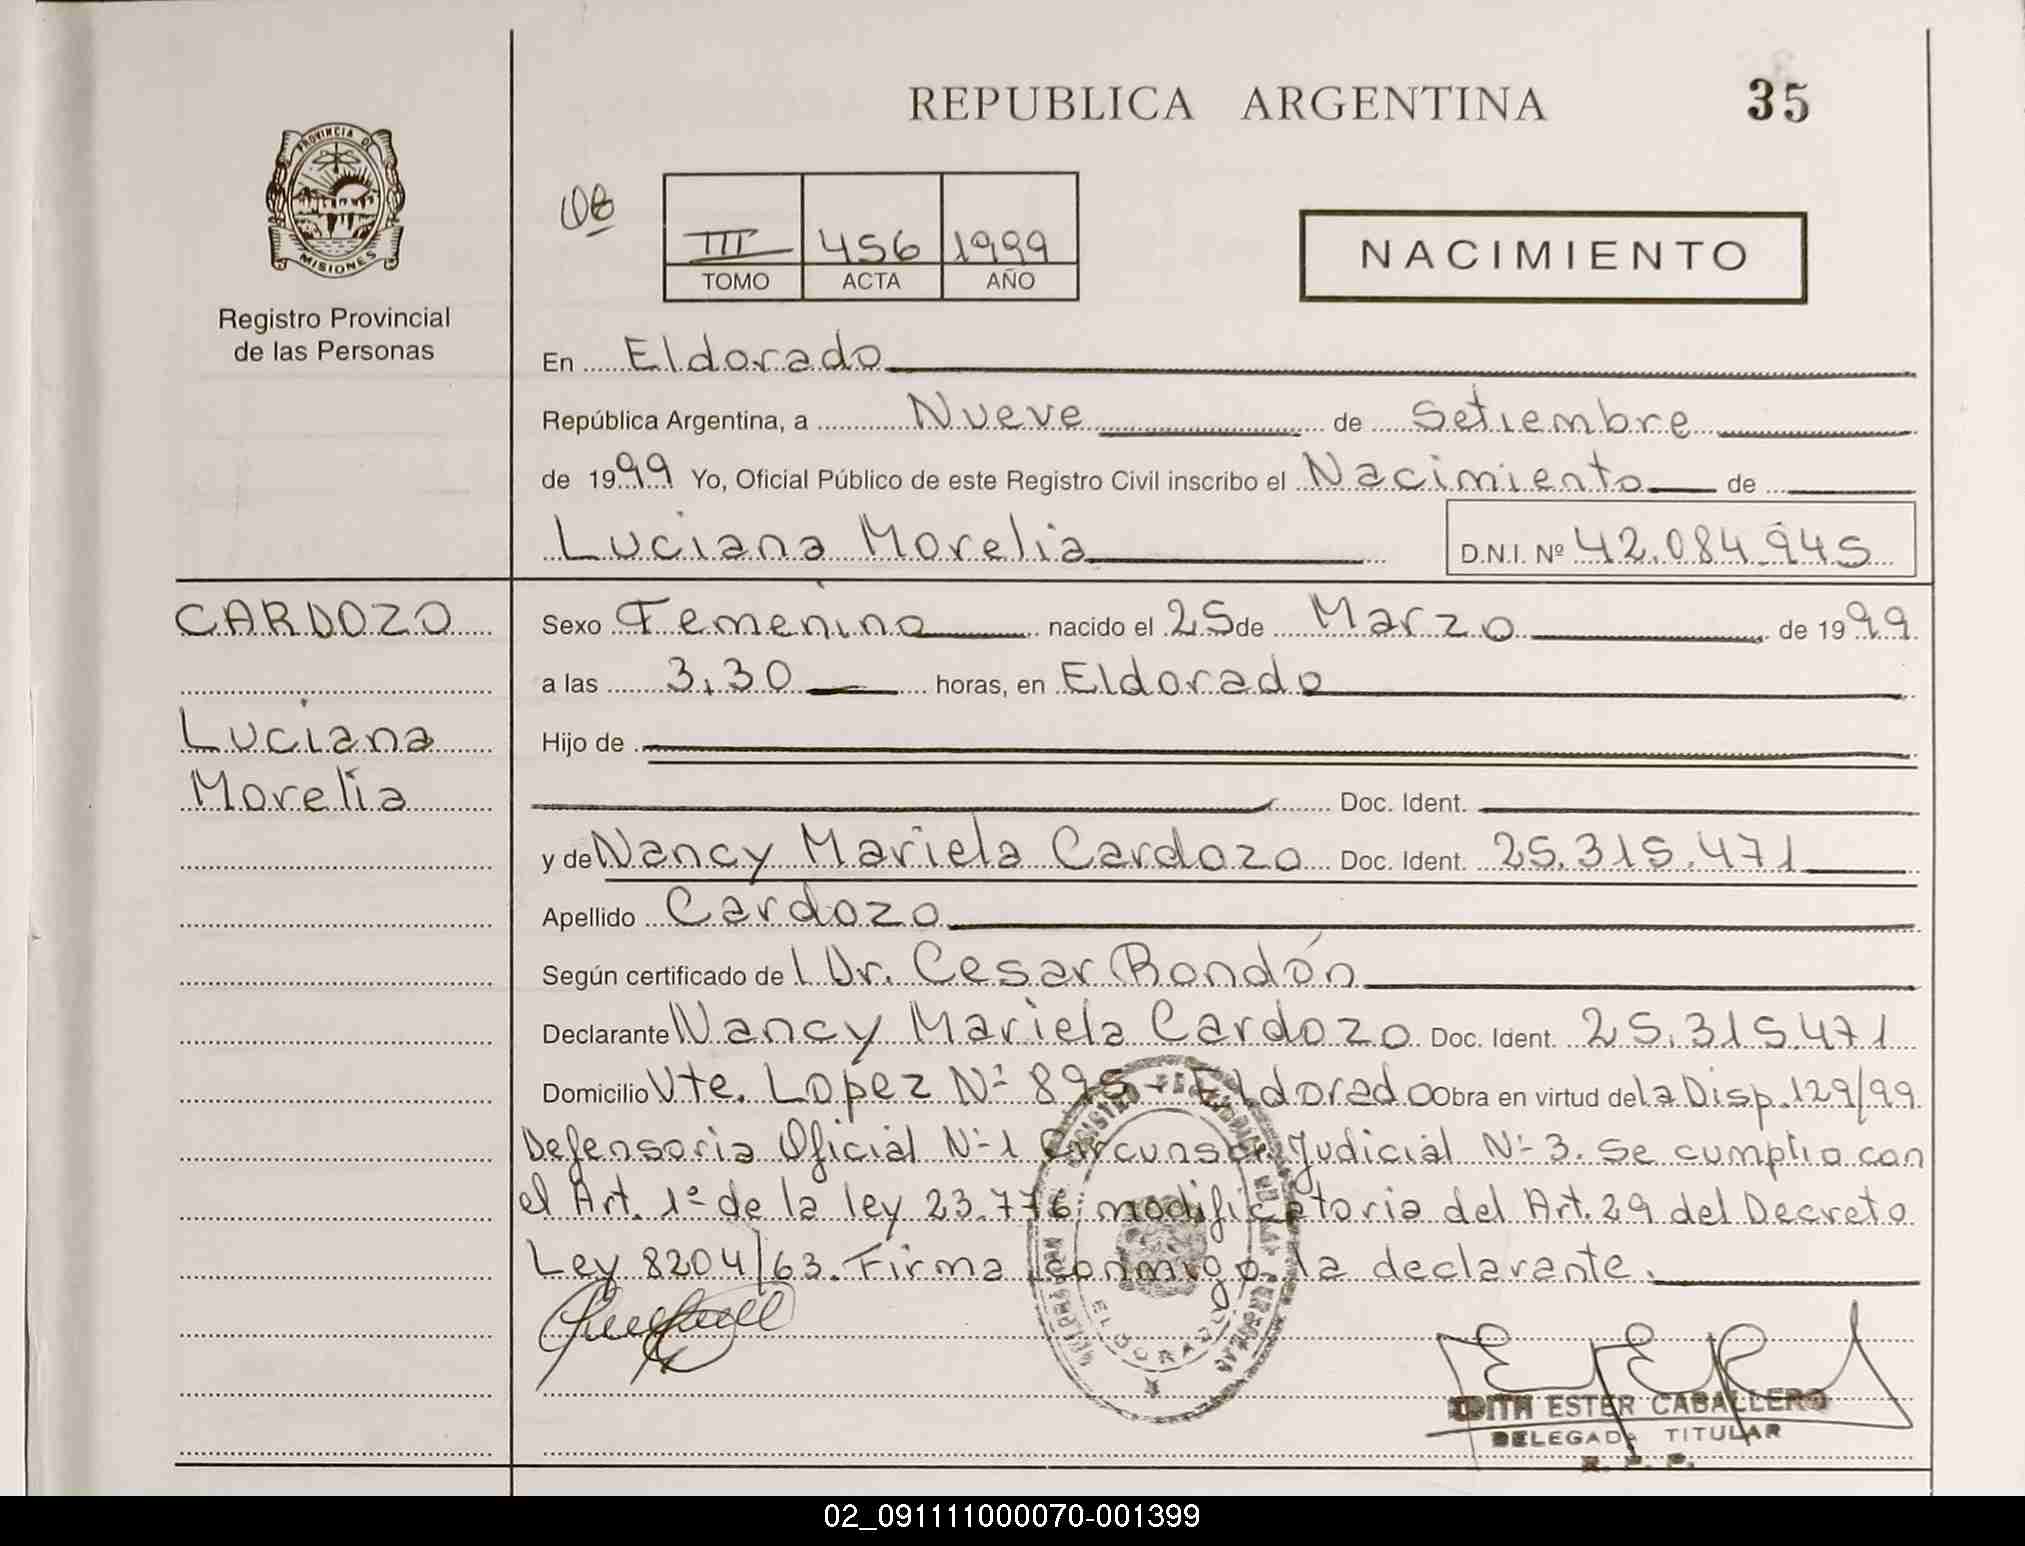 REPUBLICA ARGENTINA
35
PROVINCIA DE
MISIONES
Registro Provincial
de las Personas
III 456 1999
TOMO ACTA AÑO
NACIMIENTO
En Eldorado
República Argentina, a Nueve de Setiembre
de 1999 Yo, Oficial Público de este Registro Civil inscribo el Nacimiento de
Luciana Morelia D.N.I. Nº 42.084.945
CARDOZO
Luciana
Morelia
Sexo Femenino nacido el 25 de Marzo de 1999
a las 3,30 horas, en Eldorado
Hijo de
Doc. Ident.
y de Nancy Mariela Cardozo Doc. Ident. 25.315.471
Apellido Cardozo
Según certificado de l Dr. Cesar Rondón
Declarante Nancy Mariela Cardozo Doc. Ident. 25.315.471
Domicilio Vte. Lopez Nº 895 - Eldorado Obra en virtud de la Disp. 129/99
Defensoria Oficial Nº 1 Circunsc. Judicial Nº 3. Se cumplio con
el Art. 1º de la ley 23.776, modificatoria del Art. 29 del Decreto
Ley 8204/63. Firma conmigo la declarante.
ELDORADO
EDITH ESTER CABALLERO
DELEGADA TITULAR
R. P. P.
02_091111000070-001399